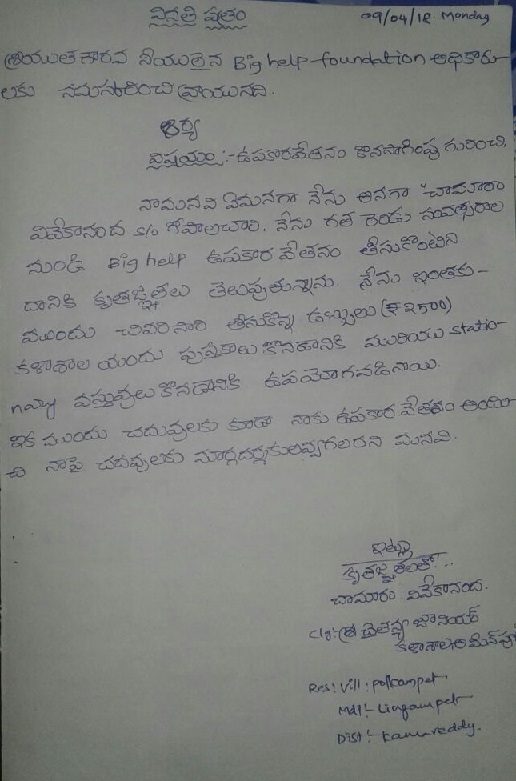 వినతి పత్రం
09/04/18 Monday
శ్రీయుత గౌరవ నీయులైన Big help foundation అధికారు-
లకు నమస్కరించి వ్రాయునది.
ఆర్య
విషయం :- ఉపకారవేతనం కొనసాగింపు గురించి.
నామనవి ఏమనగా నేను అనగా చామారం
వివేకానంద s/o గోపాలచారి. నేను గత రెండు సంవత్సరాల
నుండి Big help ఉపకార వేతనం తీసుకొంటిని
దానికి కృతజ్ఞతలు తెలుపుతున్నాను. నేను ఇంతకు-
ముందు చివరిసారి తీసుకొన్న డబ్బులు (₹2500)
కళాశాల యందు పుస్తకాలు కొనడానికి మరియు statio-
nary వస్తువులు కొనడానికి ఉపయోగపడినాయి.
ఇక ముందు చదువులకు కూడా నాకు ఉపకార వేతనం అందిం-
చి నాపై చదువులకు మనవి.
ఇట్లు
కృతజ్ఞతలతో..
చామారం వివేకానంద.
Clg:- శ్రీ చైతన్య జూనియర్
కళాశాల
Res: Vill: polkampet
Mdl:- Lingampet
Dist:- kamareddy.